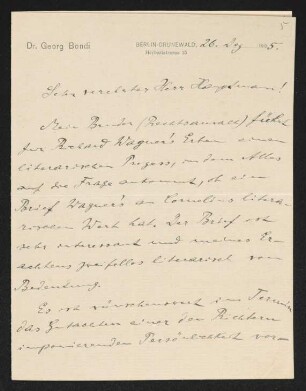 5
Dr. Georg Bondi
BERLIN-GRUNEWALD, 26. Dez 1905.
Sehr verehrter Herr Hauptmann!
Mein Bruder (Rechtsanwalt) führt
für Richard Wagner's Erben einen
literarischen Prozess, in dem Alles
auf die Frage ankommt, ob ein
Brief Wagner's an Cornelius litera-
rischen Wert hat. Der Brief ist
sehr interessant und meines Er-
achtens zweifellos literarisch von
Bedeutung.
Es ist wünschenswert im Termin
das Gutachten einer den Richtern
imponierenden Persönlichkeit vor-